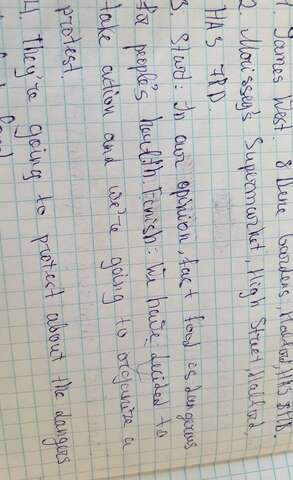 1. James West. 8 Dene Gardens, Halford, HA3 8HR.
2. Morissey's Supermarket, High Street, Halford,
HA3 7RD
3. Start: In our opinion, fast food is dangerous
for people's health. Finish: We have decided to
take action and we're going to organize a
protest.
4. They're going to protest about the dangers